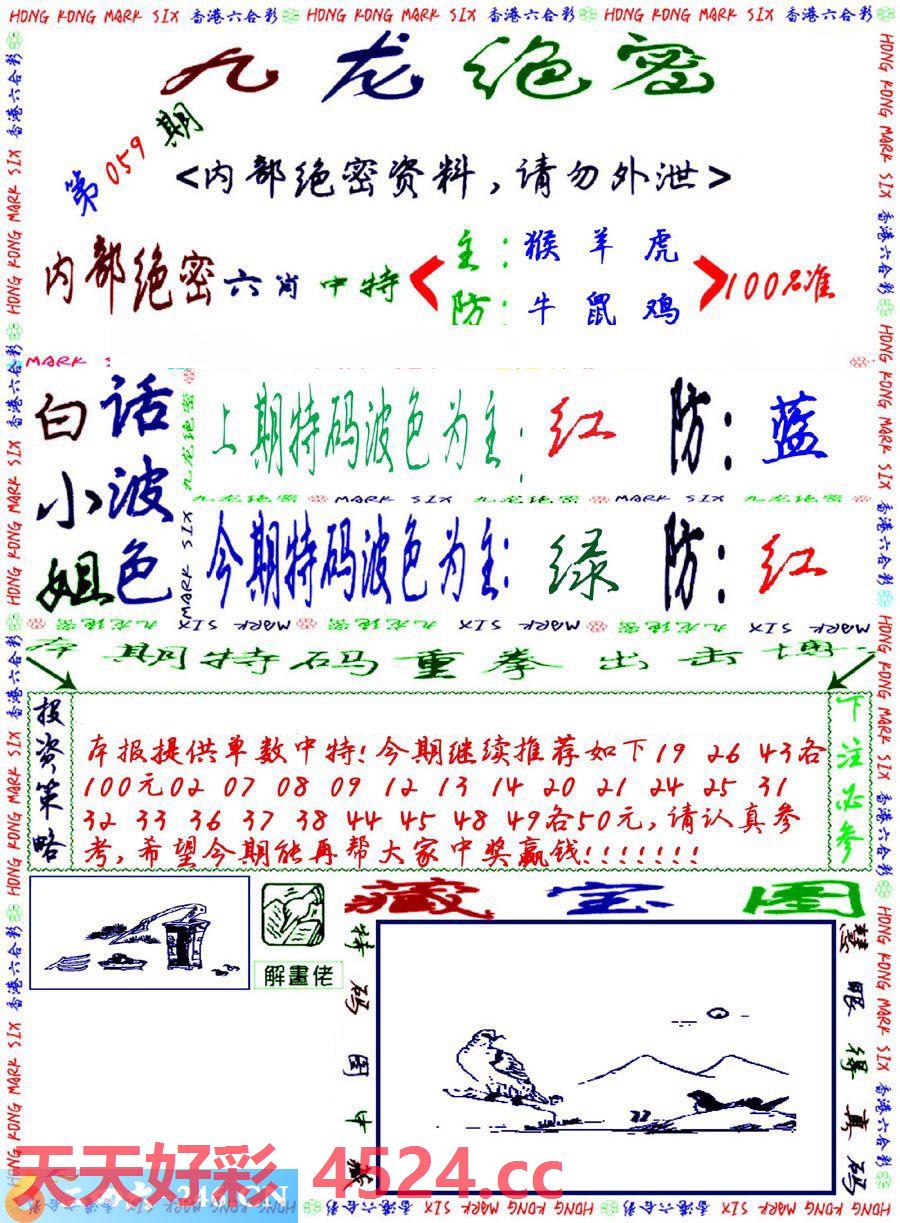 HONG KONG MARK SIX 香港六合彩 HONG KONG MARK SIX 香港六合彩 HONG KONG MARK SIX 香港六合彩
九龙绝密
第059期
<内部绝密资料,请勿外泄>
内部绝密六肖中特
主:猴羊虎
防:牛鼠鸡
100%准
MARK
白话小波姐色
上期特码波色为主:红 防:蓝
九龙绝密 MARK SIX 九龙绝密 MARK SIX 九龙绝密
今期特码波色为主:绿 防:红
期特码重拳出击
投资策略
本报提供单数中特!今期继续推荐如下19 26 43各
100元02 07 08 09 12 13 14 20 21 24 25 31
32 33 36 37 38 44 45 48 49各50元,请认真参
考,希望今期能再帮大家中奖赢钱!!!!!!!
下注必参
解畫佬
藏宝图
特码图中藏
慧眼得真码
天天好彩 4524.cc